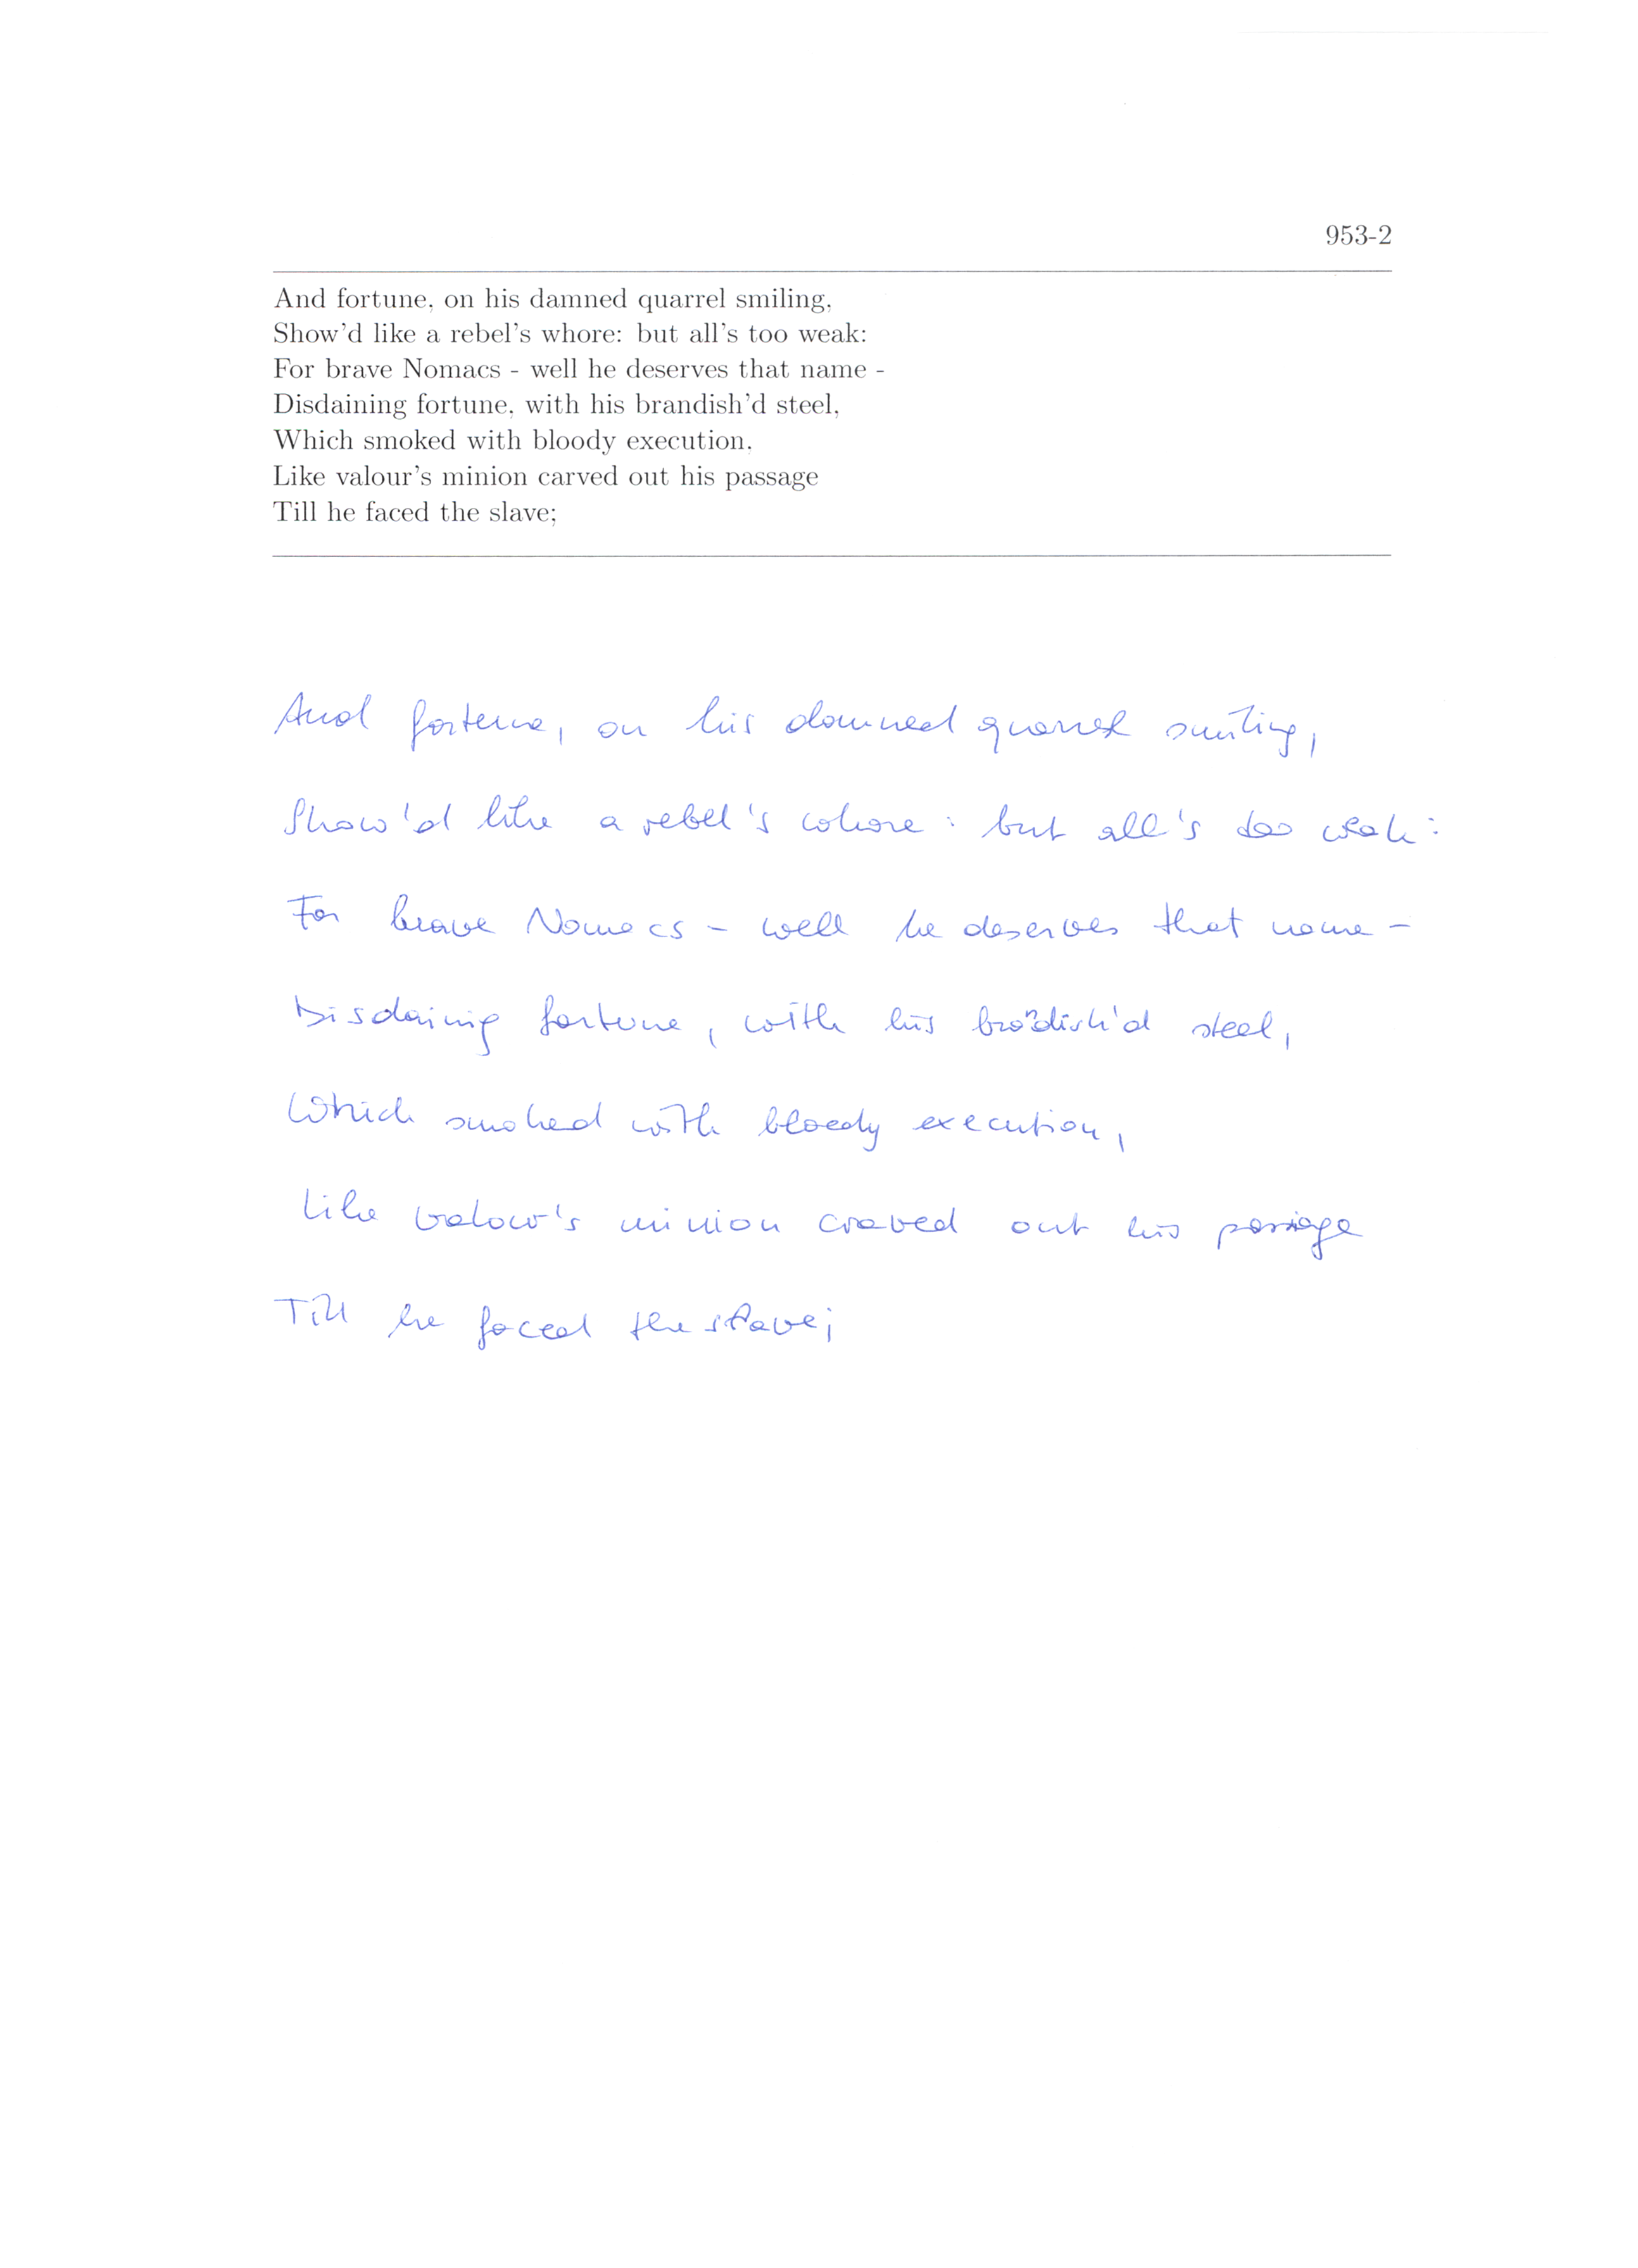 953-2
And fortune, on his damned quarrel smiling,
Show'd like a rebel's whore: but all's too weak:
For brave Nomacs - well he deserves that name -
Disdaining fortune, with his brandish'd steel,
Which smoked with bloody execution,
Like valour's minion carved out his passage
Till he faced the slave;
And fortune, on his damned quarrel smiling,
Show'd like a rebel's whore: but all's too weak:
For brave Nomacs - well he deserves that name -
Disdaining fortune, with his brandish'd steel,
Which smoked with bloody execution,
Like valour's minion craved out his passage
Till he faced the slave;